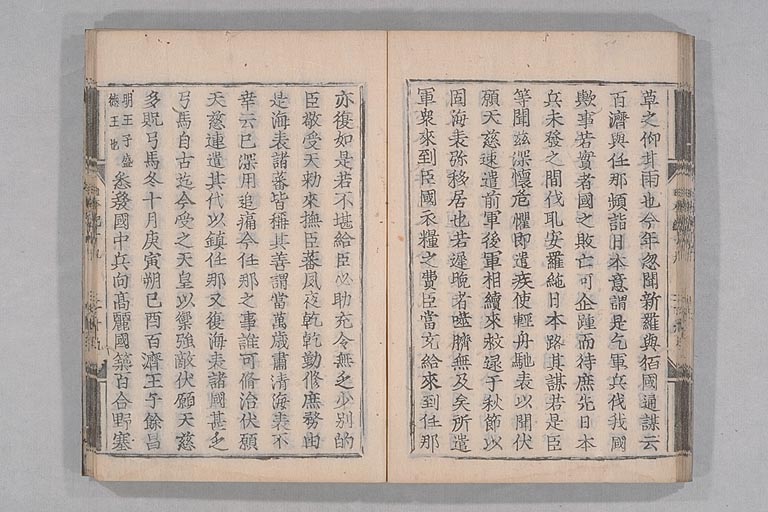 草之仰甘雨也今年忽聞新羅與狛國通謀云
百濟與任那頻詣日本意謂是乞軍兵伐我國
歟事若實者國之敗亡可企踵而待庶先日本
兵未發之間伐取安羅絶日本路其謀若是臣
等聞兹深懷危懼即遣疾使輕舟馳表以聞伏
願天慈速遣前軍後軍相續來救逮于秋節以
固海表弥移居也若遲晚者噬臍無及矣所遣
軍衆來到臣國衣糧之費臣當充給來到任那
亦復如是若不堪給臣必助充令無乏少別的
臣敬受天勅來撫臣蕃夙夜乾乾勤修庶務由
是海表諸蕃皆稱其善謂當萬歳肅清海表不
幸云亡深用追痛今任那之事誰可修治伏願
天慈速遣其代以鎮任那又復海表諸國甚乏
弓馬自古迄今受之天皇以禦強敵伏願天慈
多貺弓馬冬十月庚寅朔己酉百濟王子餘昌
明王子盛
德王也
悉發國中兵向高麗國築百合野塞